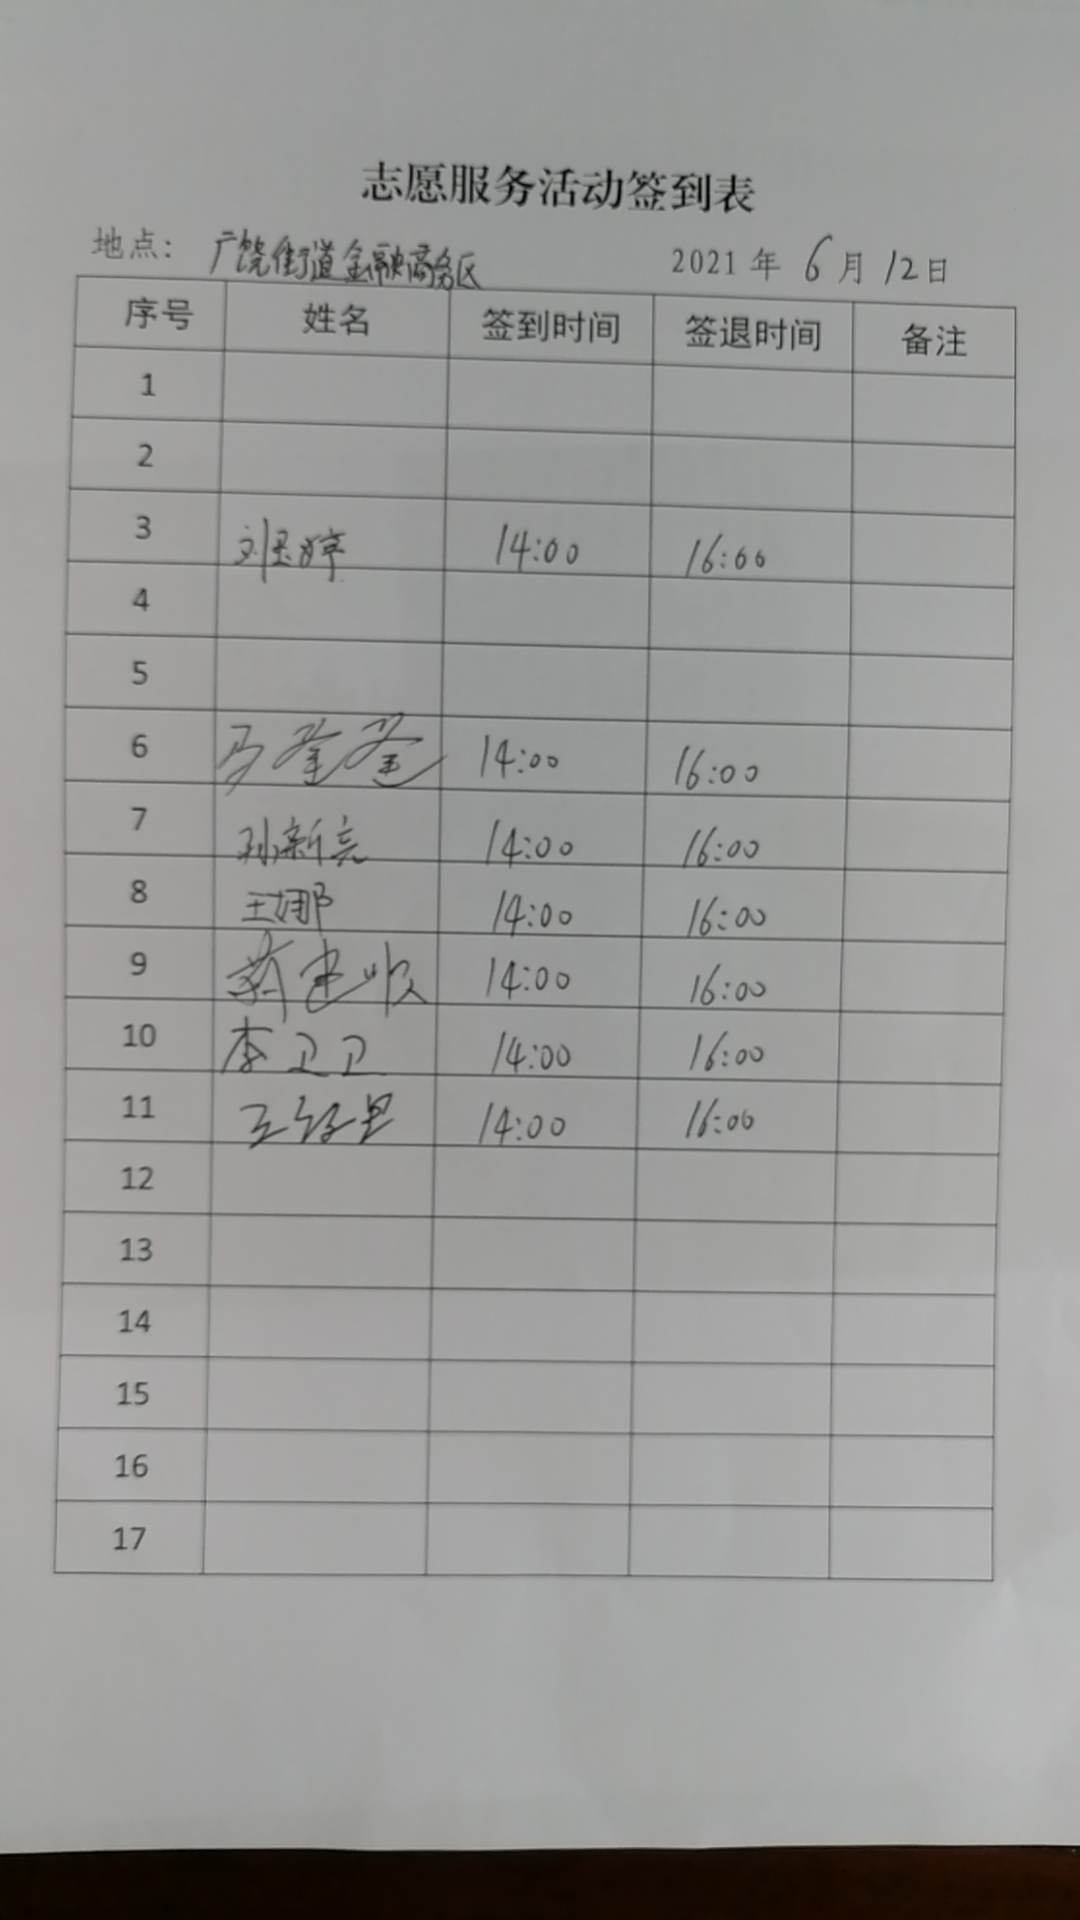 志愿服务活动签到表
地点： 广饶街道金融商务区 2021 年 6 月 12 日
序号 姓名 签到时间 签退时间 备注
1
2
3 刘玉婷 14:00 16:00
4
5
6 马 14:00 16:00
7 孙新亮 14:00 16:00
8 王娜 14:00 16:00
9 14:00 16:00
10 李卫卫 14:00 16:00
11 14:00 16:00
12
13
14
15
16
17